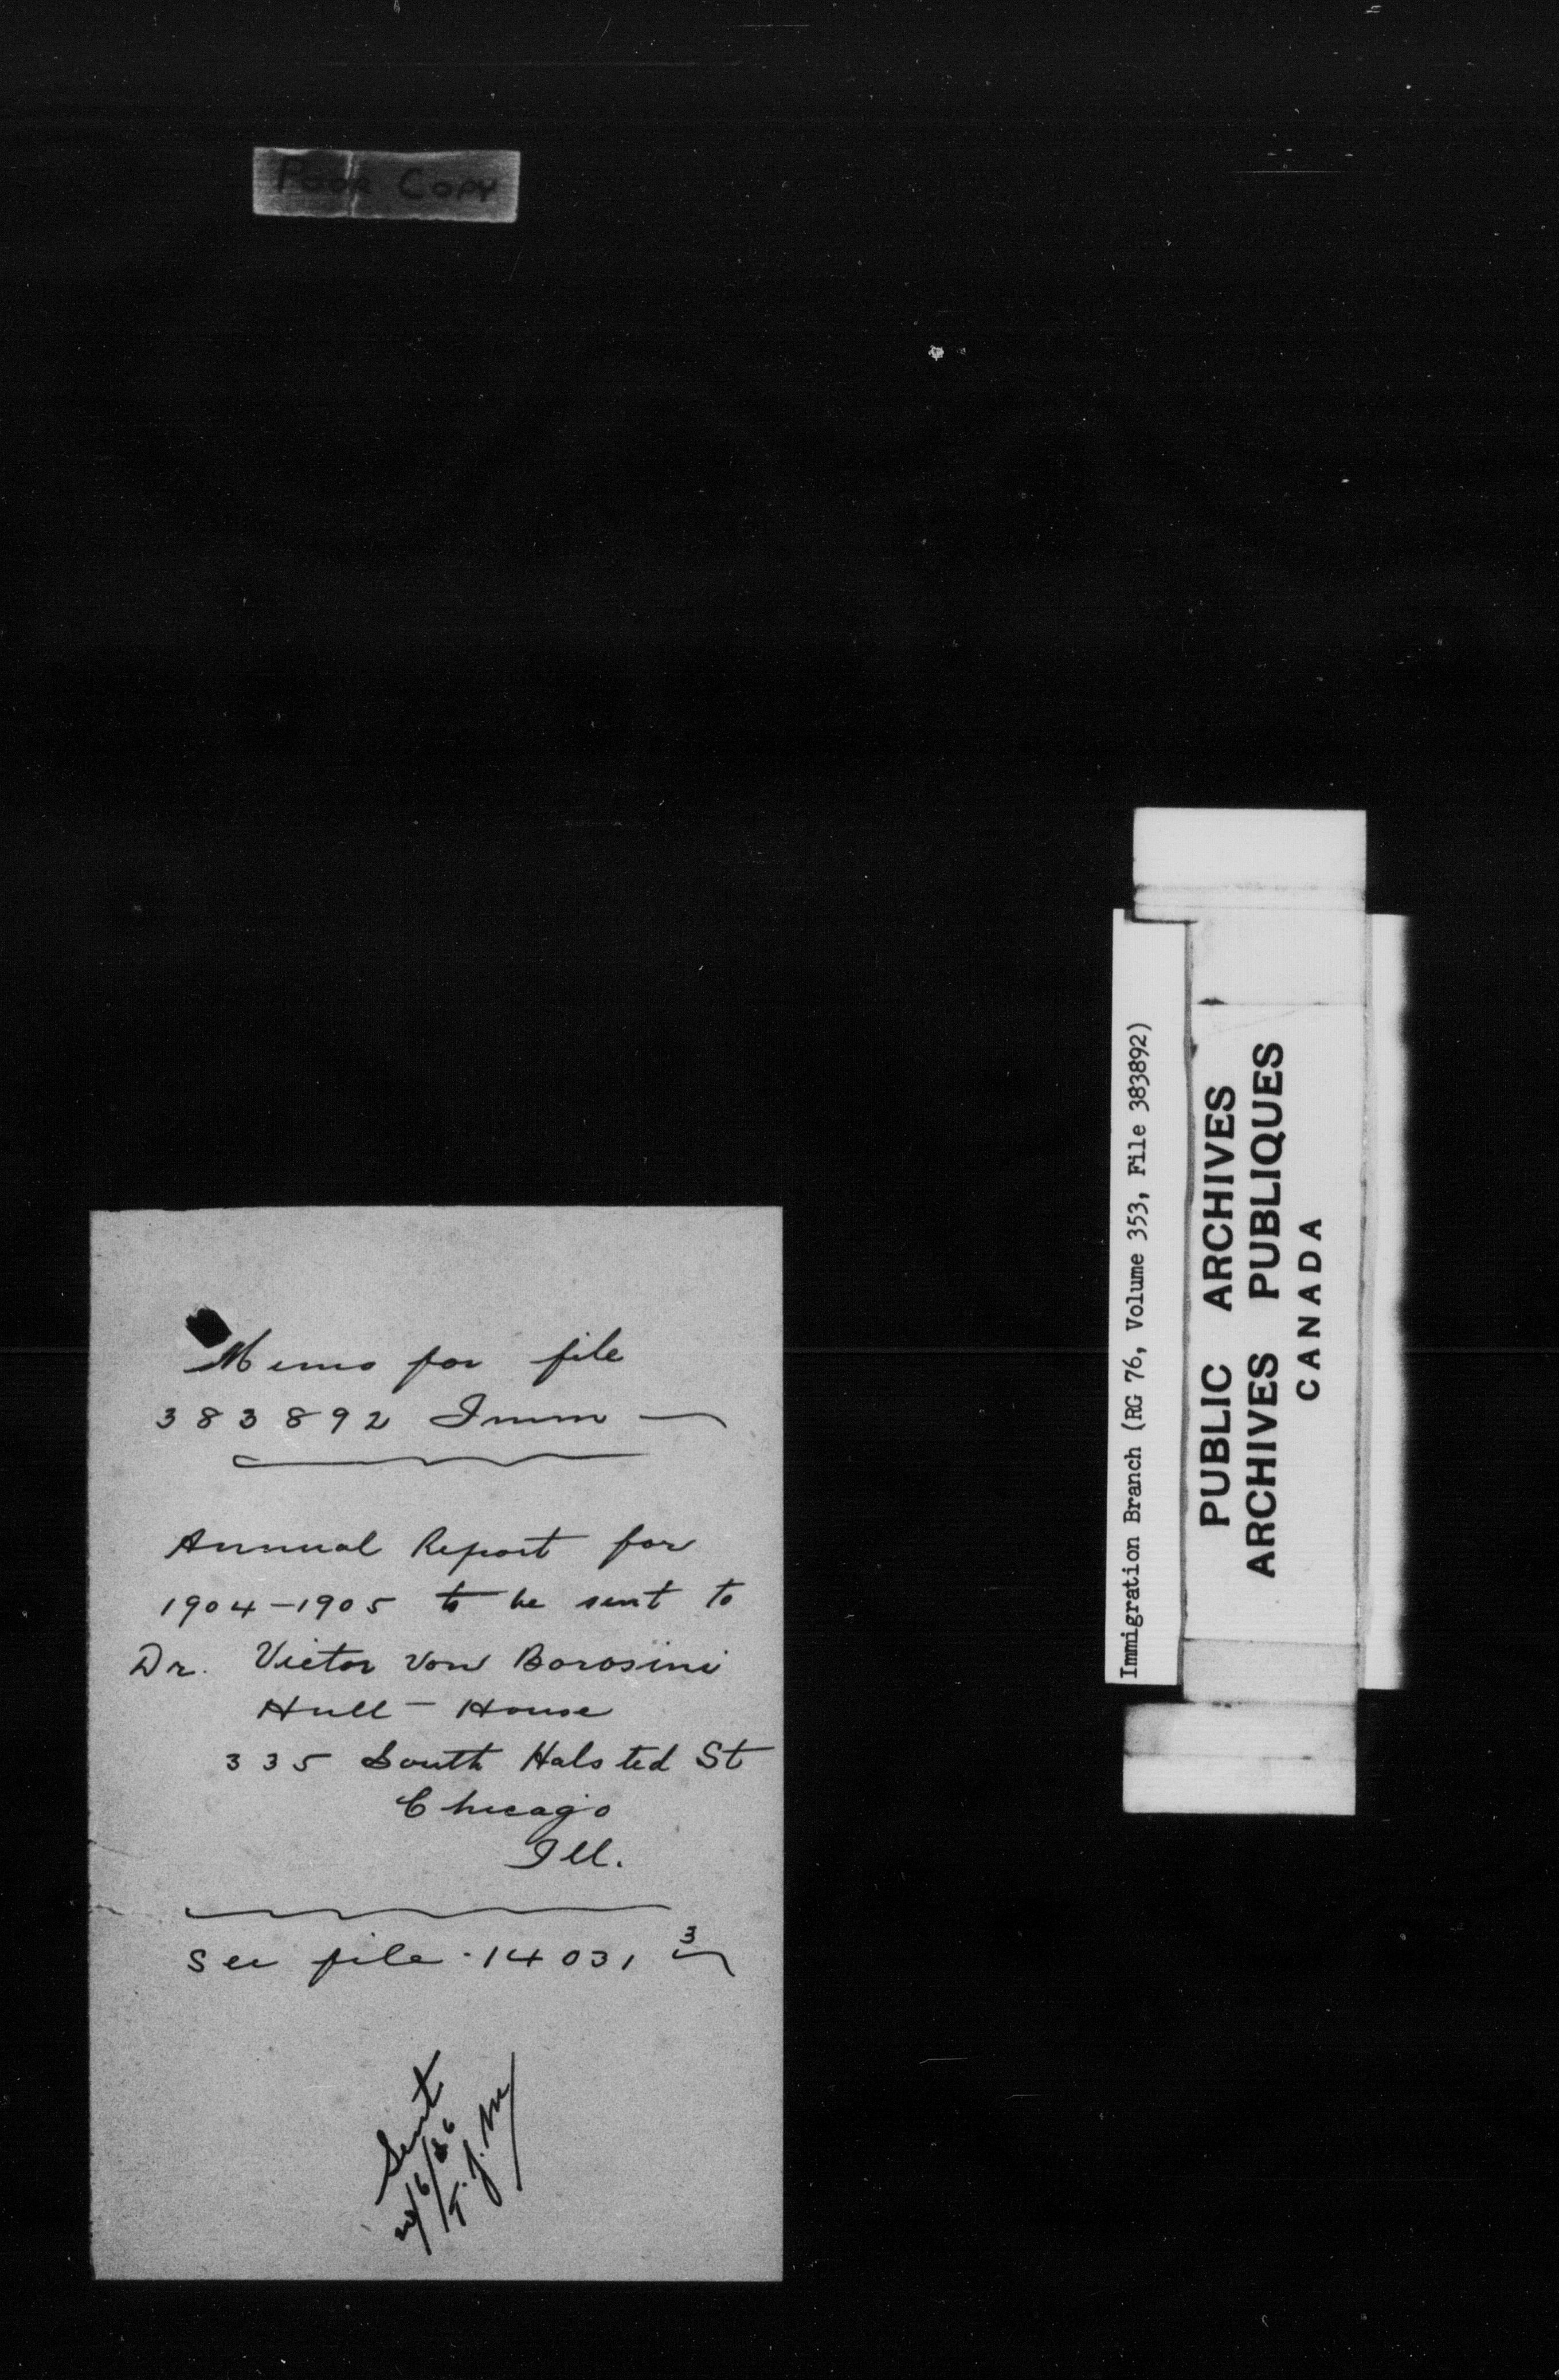 POOR COPY
Memo for file
383892 Imm
Annual Report for
1904-1905 to be sent to
Dr. Victor von Borosini
Hull-House
335 South Halsted St
Chicago
Ill.
See file 14031 3
Sent
T.J.M
Immigration Branch (RG 76, Volume 353, File 383892)
PUBLIC ARCHIVES
ARCHIVES PUBLIQUES
CANADA